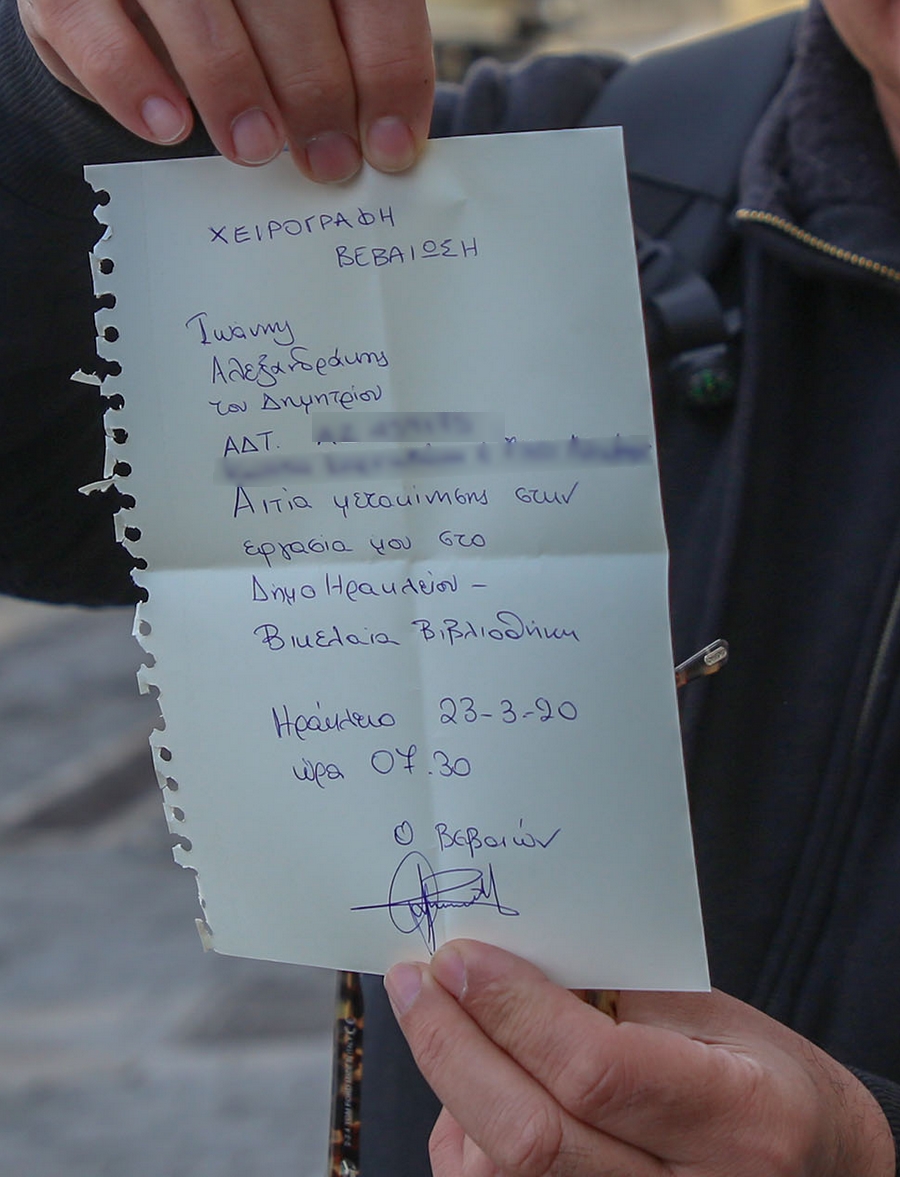 ΧΕΙΡΟΓΡΑΦΗ
ΒΕΒΑΙΩΣΗ
Ιωάννης
Αλεξανδράκης
του Δημητρίου
ΑΔΤ.
Αιτία μετακίνησης στην
εργασία μου στο
Δήμο Ηρακλείου –
Βικελαία Βιβλιοθήκη
Ηράκλειο 23-3-20
ώρα 07.30
Ο Βεβαιών